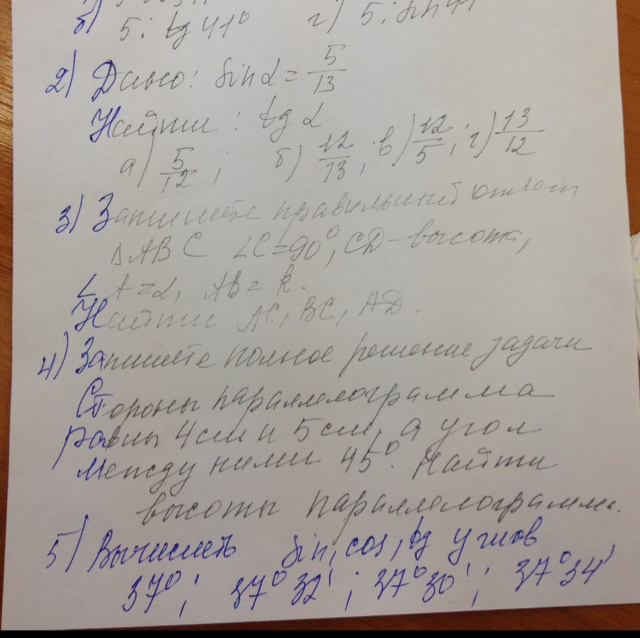 б) 5 : tg 41° г) 5 : sin 41°
2) Дано: Sin α = 5/13
Найти : tg α
а) 5/12 ; б) 12/13 ; в) 12/5 ; г) 13/12
3) Запишите правильный ответ
Δ ABC ∠C = 90°, CD – высота,
∠ A = α, AB = k.
Найти AC, BC, AD.
4) Запишите полное решение задачи
Стороны параллелограмма
равны 4 см и 5 см, а угол
между ними 45°. Найти
высоты параллелограмма.
5) Вычислить Sin, cos, tg углов
37° ; 37° 32' ; 37° 30' ; 37° 34'